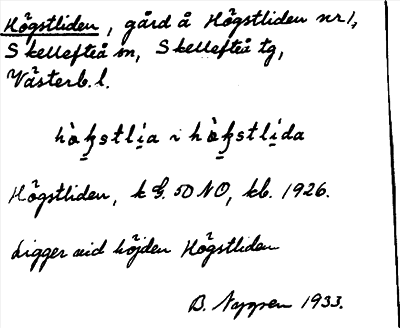 Högstliden, gård å Högstliden nr 1,
Skellefteå sn, Skellefteå tg,
Västerb. l.
Högstliden, k G. 50 NO, kb. 1926.
Ligger vid höjden Högstliden
B. 1933.